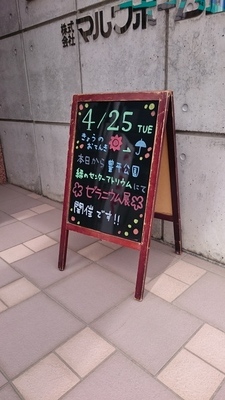 株式
会社
マルワホーム
4/25 TUE
きょうの
おてんき
本日から 豊平公園
緑のセンターアトリウムにて
ゼラニウム展
開催です!!